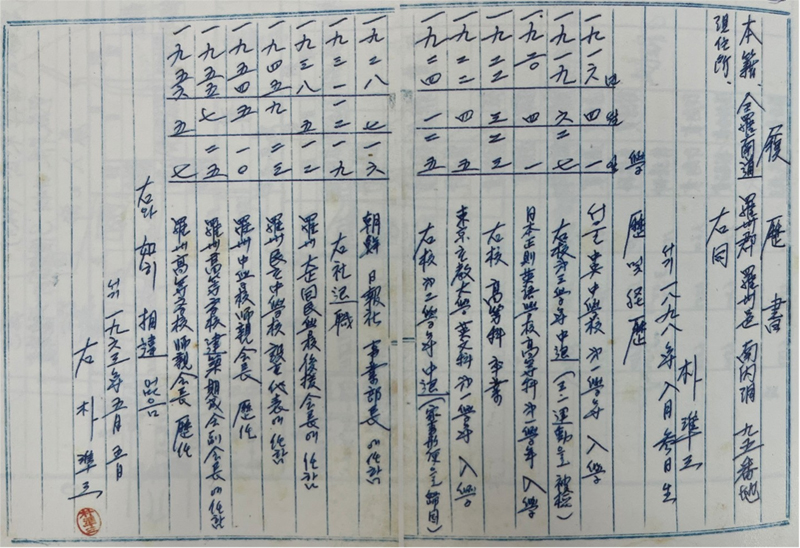 履歷書
本籍、全羅南道 羅州郡 羅州邑 南內洞 九五番地
現住所、右同
朴準三
서기 一八九八年 八月 參日生
學歷 및 经歷
年 月 日
一九一六 四 一 서울 中央中學校 第一學年 入學
一九一九 六 二七 右校 第三學年 中退 (三·一運動으로 被檢)
一九二〇 四 一 日本正則英語學校 高等科 第一學年 入學
一九二二 三 二三 右校 高等科 卒業
一九二二 四 五 東京立敎大學 英文科 第一學年 入學
一九二四 一 二五 右校 第二學年 中退 (家事形便으로 歸國)
一九二八 七 一六 朝鮮日報社 事業部長에 任함
一九三一 一二 一九 右社 退職
一九三八 五 一二 羅州 國民學校 後援會長에 任함
一九四五 九 二三 羅州 民立中學校 設立代表에 任함
一九五四 五 一〇 羅州中學校 師親會長 歷任
一九五五 七 二五 羅州高等學校 建築期成會副會長에 任함
一九五六 五 七 羅州高等學校 師親會長 歷任
右와 如히 相違 없음
서기 一九六三年 五月 五日
右 朴準三